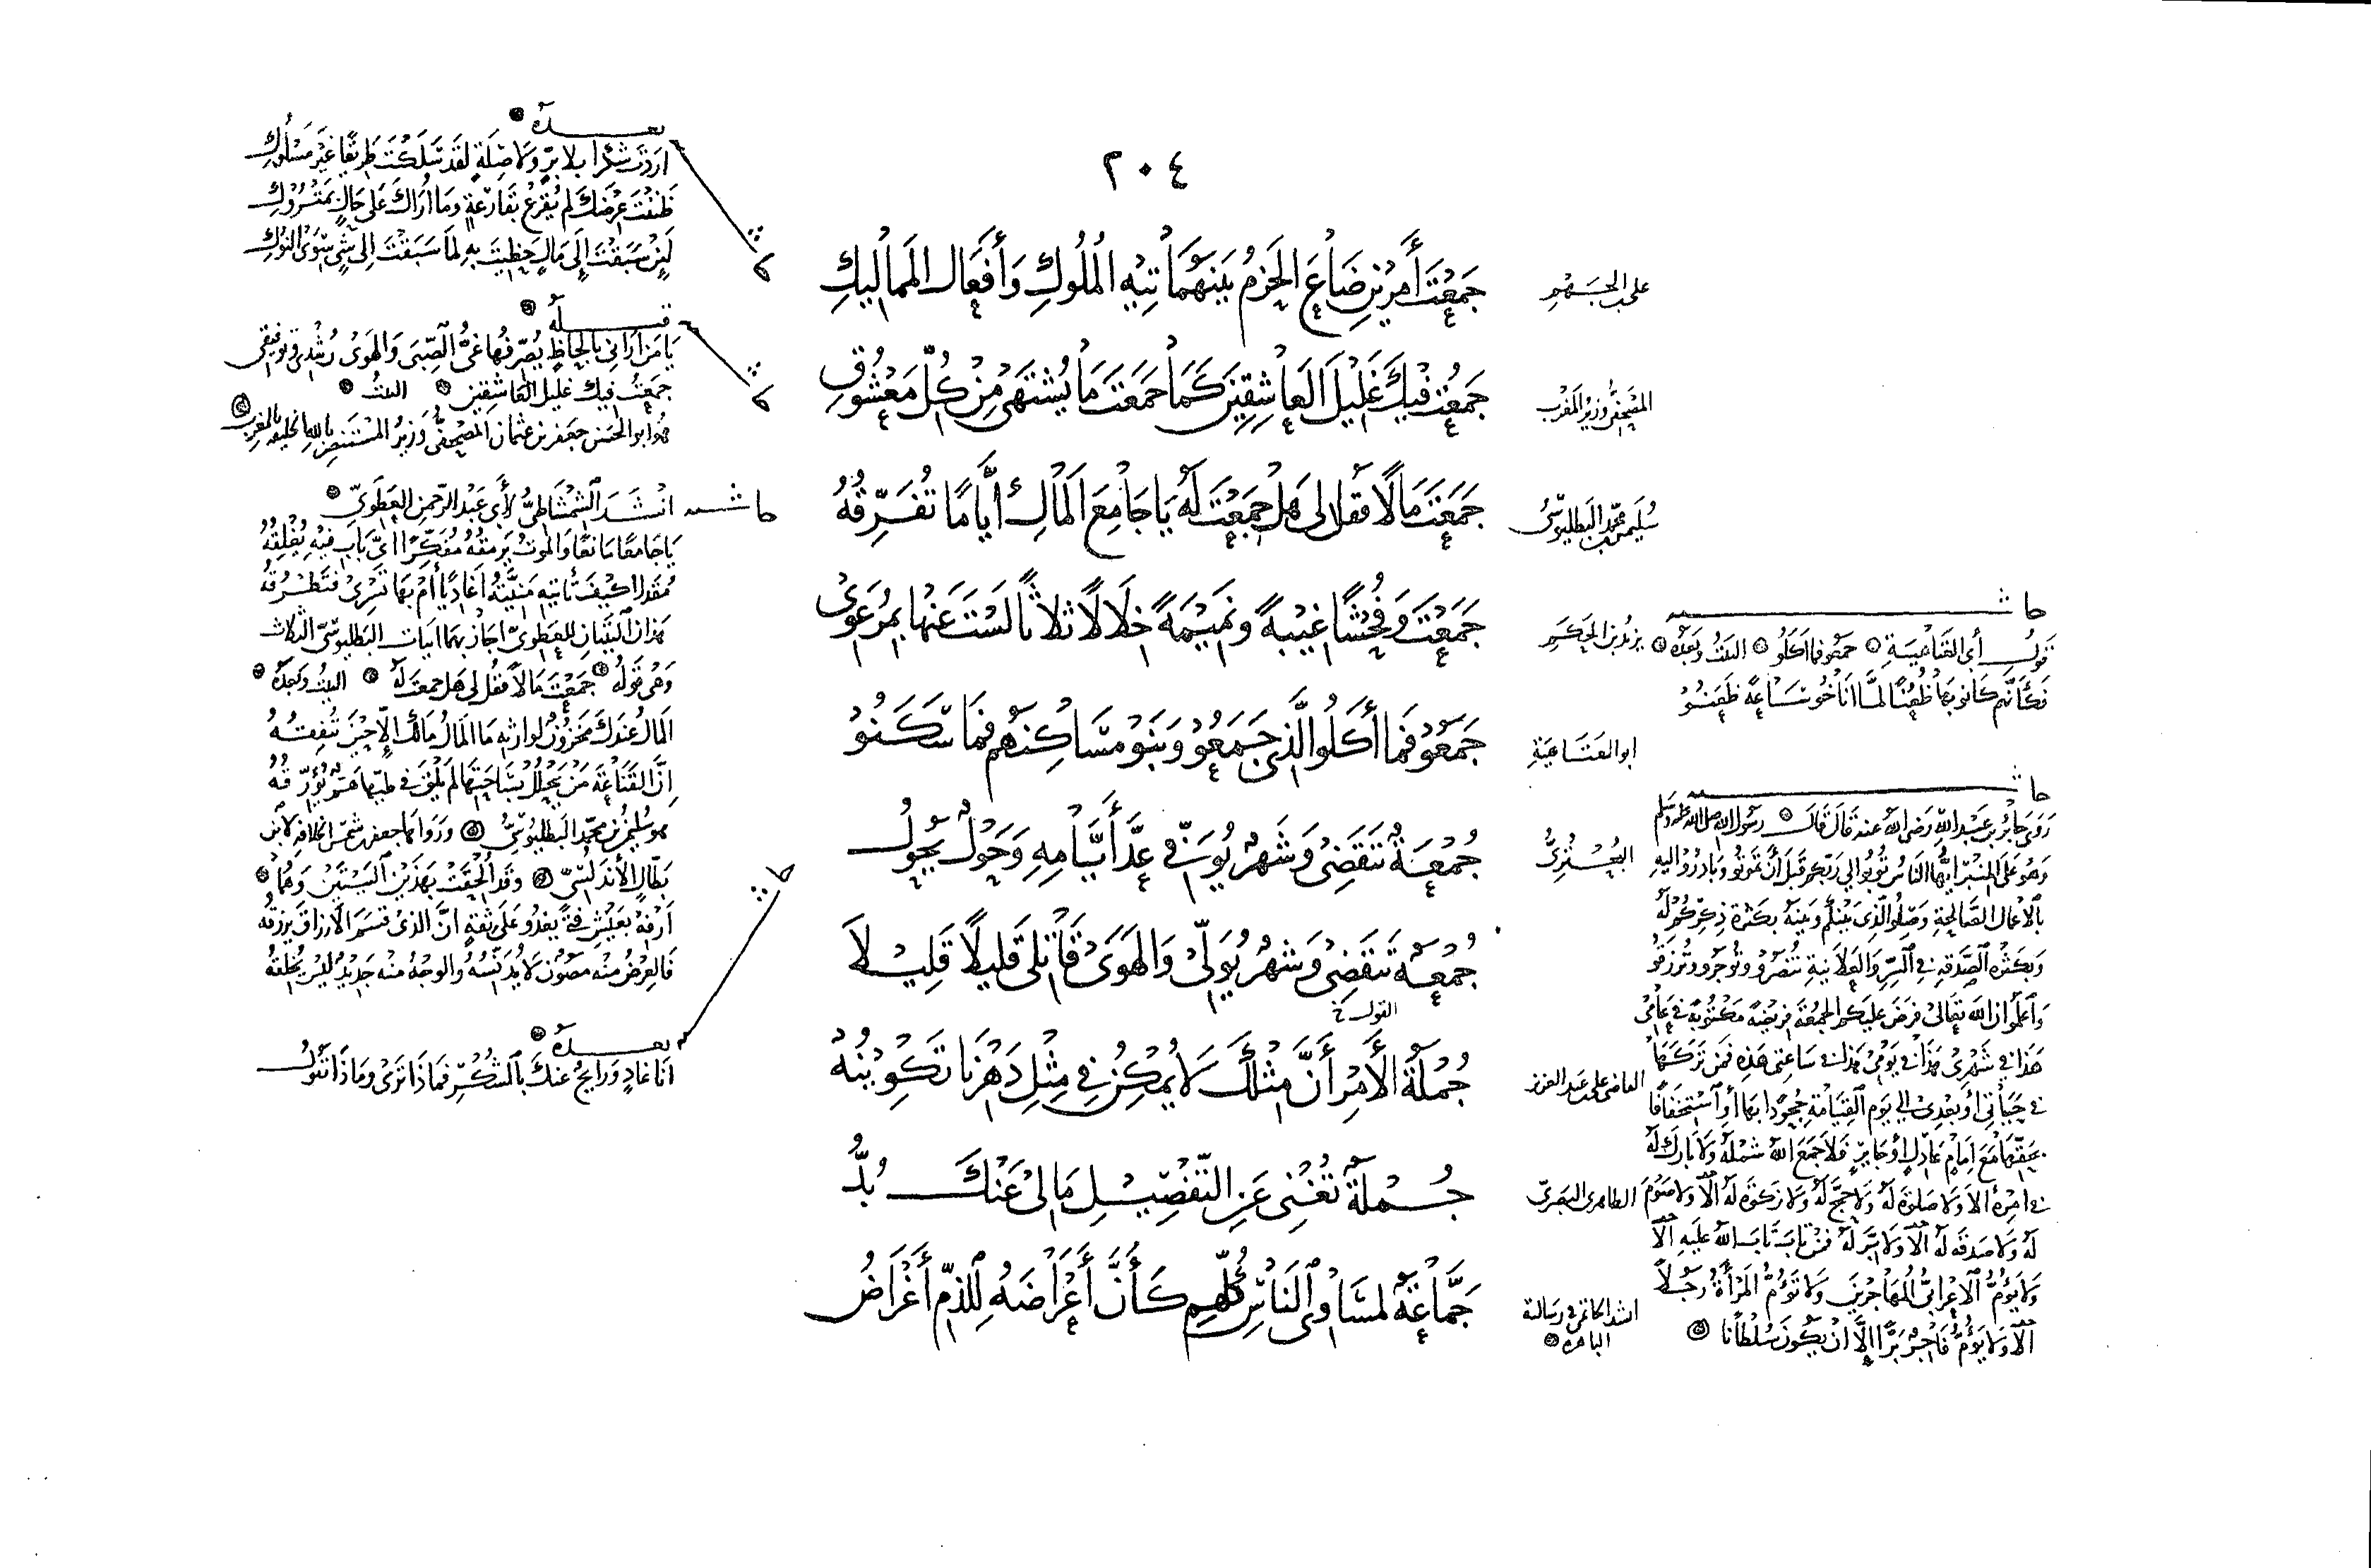 ٢٠٤
جَمَعْتَ أَمْرَيْنِ ضَاعَ الحَزمُ بَيْنَهُمَا تِيْهِ المُلُوكِ وَأَفعَالِ المَمالِيكِ
جَمَعْتُ فيكَ غَلِيْلَ العَاشِقِيْنَ كَمَا جَمَعْتَ مَا يُشْتَهَى مِنْ كُلِّ مَعْشُوقِ
جَمَعْتَ مَالًا فَقُل لِي هَلْ جَمَعْتَ لَهُ يَا جَامِعَ المَالِ أَيَّامًا تُفَرِّقُهُ
جَمَعْتَ وَفُحْشًا غِيْبَةً وَنَمِيْمَةً خِلَالًا ثَلاثًا لَسْتَ عَنْهَا بِمُرْعَوِى
جَمَعُوْ فَمَا أَكَلُوا الَّذِي جَمَعُوْ وَبَنَوْ مَسَاكِنَهُم فَمَا سَكَنُوْ
جُمْعَةٌ تَنْقَضِى وَشَهْرٌ يُوَفِّى عِدَّ أَيَّامِهِ وَحَوْلٌ يَحُوْلُ
جُمْعَةٌ تَنقَضِى وَشَهْرٌ يُوَلِّى وَالهَوَى قَاتِلِى قَلِيْلًا قَلِيْلَا
القول خ
جُمْلَةُ الأَمْرِ أَنَّ مِثْلَكَ لَا يُمْكِنُ فِي مِثْلِ دَهْرِنَا تَكْوِيْنُهُ
جُمْلَةٌ تُغْنِى عَنِ التَّفْصِيْلِ مَا لِىْ عَنْكَ بُدُّ
جَمَّاعَةٌ لِمَسَاوِى النَّاسِ كُلِّهِم كَأَنَّ أَعْرَاضَهُ لِلذَّمِّ أَغْرَاضُ
على بن الجهم
المصحفى وزير المغرب
سليمن بن محمد البطليوسى
يزيد بن الحكم
ابو العتاهية
البحترى
القاضى على بن عبد العزيز
الطاهرى البصرى
انشد الحاتمى فى رسالة
الباهره
بعده
اَرَدْتَ شُكْرًا بِلا بِرٍّ وَلا صِلَةٍ لَقَد سَلَكْتَ طَرِيْقًا غَيْرَ مَسْلُوكِ
ظَنَنْتَ عِرْضَكَ لم يُقْرَعْ بقَارِعَةٍ وَمَا أَرَاكَ عَلَى حَالٍ بمَتْرُوْكِ
لَئِنْ سَبَقْتَ إِلَى مَالٍ حَظِيْتَ بِهِ لَمَا سَبَقْتَ إِلَى شَيءٍ سِوَى النُّوْكِ
قبله
يُصَرِّفُهَا غَيُّ الصِّبَى وَالهَوَى رُشْدِى وَتوفِيْقِى
جمعتُ فيك غليل العاشقين البيتُ
هُوَ ابو الحسن جعفر بن عثمان المصحفىُّ وَزيرُ المستنصر بالله الخليفه بالمغرب
حاشية انشَدَ الشِمْشَاطِىُّ لأَبى عَبْد الرَّحمن العَطَوِىّ
يَا جَامِعًا مَانعًا وَالموتُ يَرمُقُهُ مُفَكِّرًا أىَّ بَابٍ فيْهِ يُغْلِقُهُ
مُقَدِّرًا كَيْفَ تَأتيهِ مَنِيَّتُهُ أَغَادِيًا أَمْ بهَا تَسْرِى فَتَطْرُقُهُ
هذان البَيْتَانِ لِلعَطَوِىّ اجَازَ بهمَا ابيات البَطليوسِىّ الثلاث
وَهْىَ قَولُهُ جَمَعْتَ مَالاً فَقُل لِى هَل جمعتَ لَهُ البيتُ وَبَعدَهُ
المَالُ عِنْدَكَ مَخزُونٌ لِوَارثِهِ مَا المَالُ مَالُكَ إِلَّا حِيْنَ تُنفِقُهُ
إِنَّ القَنَاعَةَ مَنْ يَحْلُلْ بسَاحَتِهَا لَم يَلْقَ فى ظِلّهَا هَمًّا يُؤَرِّقُهُ
هو سُليمنُ بن محمد البَطليوسِىُّ وَرَوَاهَا جعفر بن شمس الخلافه لابْن
بَطّالٍ الأَندلُسِىِّ وقَد أُلحِقَتْ بهَذَيْن البَيْتَيْنِ وَهُمَا
أَرْفِهْ بِعَيْشِ فَتًى يغدُو عَلَى ثِقَةٍ انَّ الذى قَسَمَ الأَرزَاقَ يَرزُقُهُ
فَالعِرْضُ منْهُ مَصُوْنٌ لَا يُدَنِّسُهُ وَالوَجْهُ منْهُ جَدِيدٌ لَيْسَ يُخْلِقُهُ
بعده
أَنَا غَادٍ وَرَايحٌ عنكَ بالشُّكْرِ فمَاذَا تَرَى وَمَا ذَا تَقُولُ
حاشية
قَولُ أَبى العَتَاهِيَةِ جَمعُو فما اَكَلُو البَيتُ وَبَعدَهُ
فَكَأَنَّهُم كَانُو بهَا ظُعُنًا لَمَّا أَنَاخُو سَاعَةً ظَعَنُوْ
حاشية
رَوَى جَابْرُ بن عَبْدِ اللهِ رَضِىَ اللهُ عنهُ قَالَ قَالَ رسُول الله صلى الله عليه وسلم
وَهُوَ عَلَى المِنْبَرِ ايُّهَا النَاسُ تُوبُوا إلى رَبّكم قَبْلَ أَنْ تَمُوتُو وَبَادِرُوْا اليهِ
بالأعمال الصَّالِحةِ وَصِلُو الَّذِى بَيْنَكُم وَبَيْنَهُ بكَثْرَةِ ذِكْرِكُم لَهُ
وَبكثرَةِ الصَّدقه فى السِّرِّ وَالعَلَانيةِ تُنْصَرُو وتُوجَرُو وتُرزَقُو
وَاعلَمُو انَّ اللهَ تعَالى فَرَضَ عليكم الجمُعَة فريضَةً مَكتُوبَةً فى عَامِى
هَذَا فى شَهْرِى هَذَا فى يَوْمِى هَذَا فى سَاعتى هَذِهِ فَمَن تَرَكَهَا
فى حَيَاتى أَو بَعْدِى إلى يَومِ القِيَامَةِ جُحُودًا بهَا أو استخفَافًا
بحَقّهَا مَعَ إِمَامٍ عَادِلٍ أَو جَايرٍ فَلَا جَمَعَ الله شَمْلَهُ وَلَا بَارَكَ لَهُ
فى امْرِهِ اَلَا وَلا صَلوةَ لَهُ وَلا حَجَّ لَهُ وَلا زكوةَ لَهُ أَلَا وَلا صَوْمَ
لَهُ وَلا صَدقَه لَهُ أَلَا وَلا بِرَّ لَهُ فمَنْ تابَ تَابَ اللهُ عَلَيهِ أَلَا
وَلَا يَؤُمُّ الأعْرَابىُّ المُهَاجِرِيْنَ وَلَا تَؤُمُّ المَرْأَةُ رَجُلاً
أَلَا وَلَا يَؤُمُّ فَاجِرٌ بَرًّا إِلَّا انْ يكُونَ سُلْطَانًا